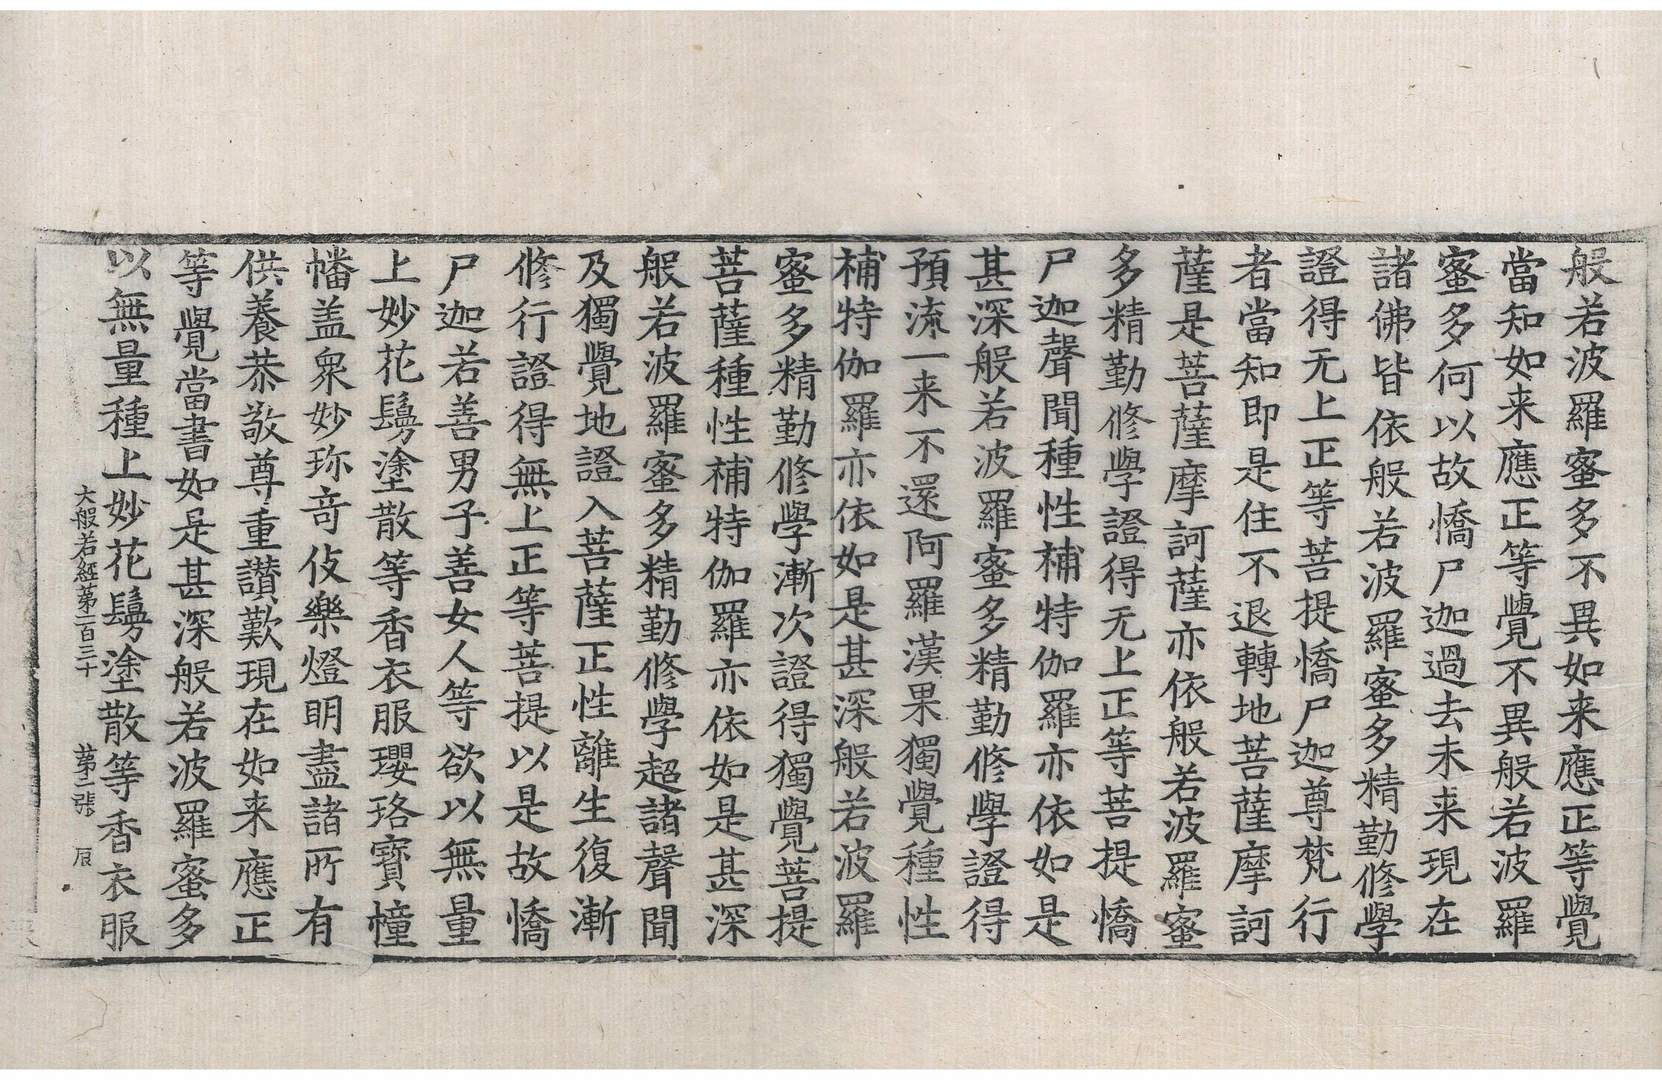 般若波羅蜜多不異如来應正等覺
當知如来應正等覺不異般若波羅
蜜多何以故憍尸迦過去未来現在
諸佛皆依般若波羅蜜多精勤修學
證得无上正等菩提憍尸迦尊梵行
者當知即是住不退轉地菩薩摩訶
薩是菩薩摩訶薩亦依般若波羅蜜
多精勤修學證得无上正等菩提憍
尸迦聲聞種性補特伽羅亦依如是
甚深般若波羅蜜多精勤修學證得
預流一来不還阿羅漢果獨覺種性
補特伽羅亦依如是甚深般若波羅
蜜多精勤修學漸次證得獨覺菩提
菩薩種性補特伽羅亦依如是甚深
般若波羅蜜多精勤修學超諸聲聞
及獨覺地證入菩薩正性離生復漸
修行證得無上正等菩提以是故憍
尸迦若善男子善女人等欲以無量
上妙花鬘塗散等香衣服瓔珞寳幢
幡盖衆妙珎竒伎樂燈明盡諸所有
供養恭敬尊重讃歎現在如来應正
等覺當書如是甚深般若波羅蜜多
以無量種上妙花鬘塗散等香衣服
大般若經第一百三十　第二張　辰